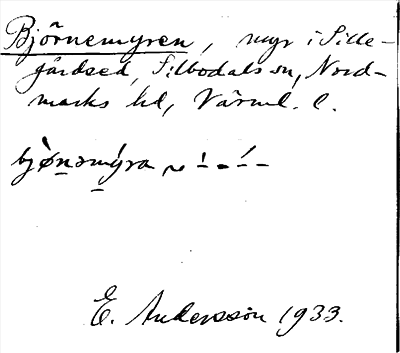 Björnemyren, myr i Sille-
gårdsed, Silbodals sn, Nord-
marks hd, Värml. l.
bjø̀nəmýra ~
E. Andersson 1933.